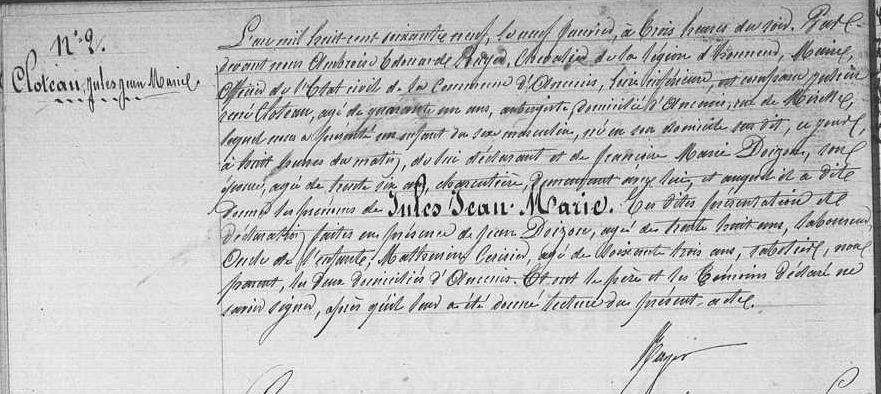 N° 2.
Cloteau, Jules Jean Marie
L'an mil huit cent soixante neuf, le neuf Janvier, à trois heures du soir. Par
devant nous Ambroise Edouard Rayer, Chevalier de la légion d'honneur, Maire,
Officier de l'Etat civil de la Commune d'Ancenis, Loire inférieure, est comparu
rené Cloteau, agé de quarante un ans, aubergiste, domicilié d'Ancenis, rue de
lequel nous a présenté un enfant du sexe masculin, né en son domicile sus dit, ce jour,
à huit heures du matin, de lui déclarant et de francine Marie Doizon, son
épouse, agée de trente six ans, charcutière, demeurant avec lui, et auquel il a dit
donner les prénoms de Jules Jean Marie. Les dites présentation et
déclaration faites en présence de pierre Doizon, agé de trente huit ans, laboureur,
Oncle de l'enfant, Mathurin agé de soixante trois ans, sabotier, non
parent, les deux domiciliés d'Ancenis. Et ont le père et les témoins déclaré ne
savoir signer, après qu'il leur a été donné lecture du présent acte.
Rayer